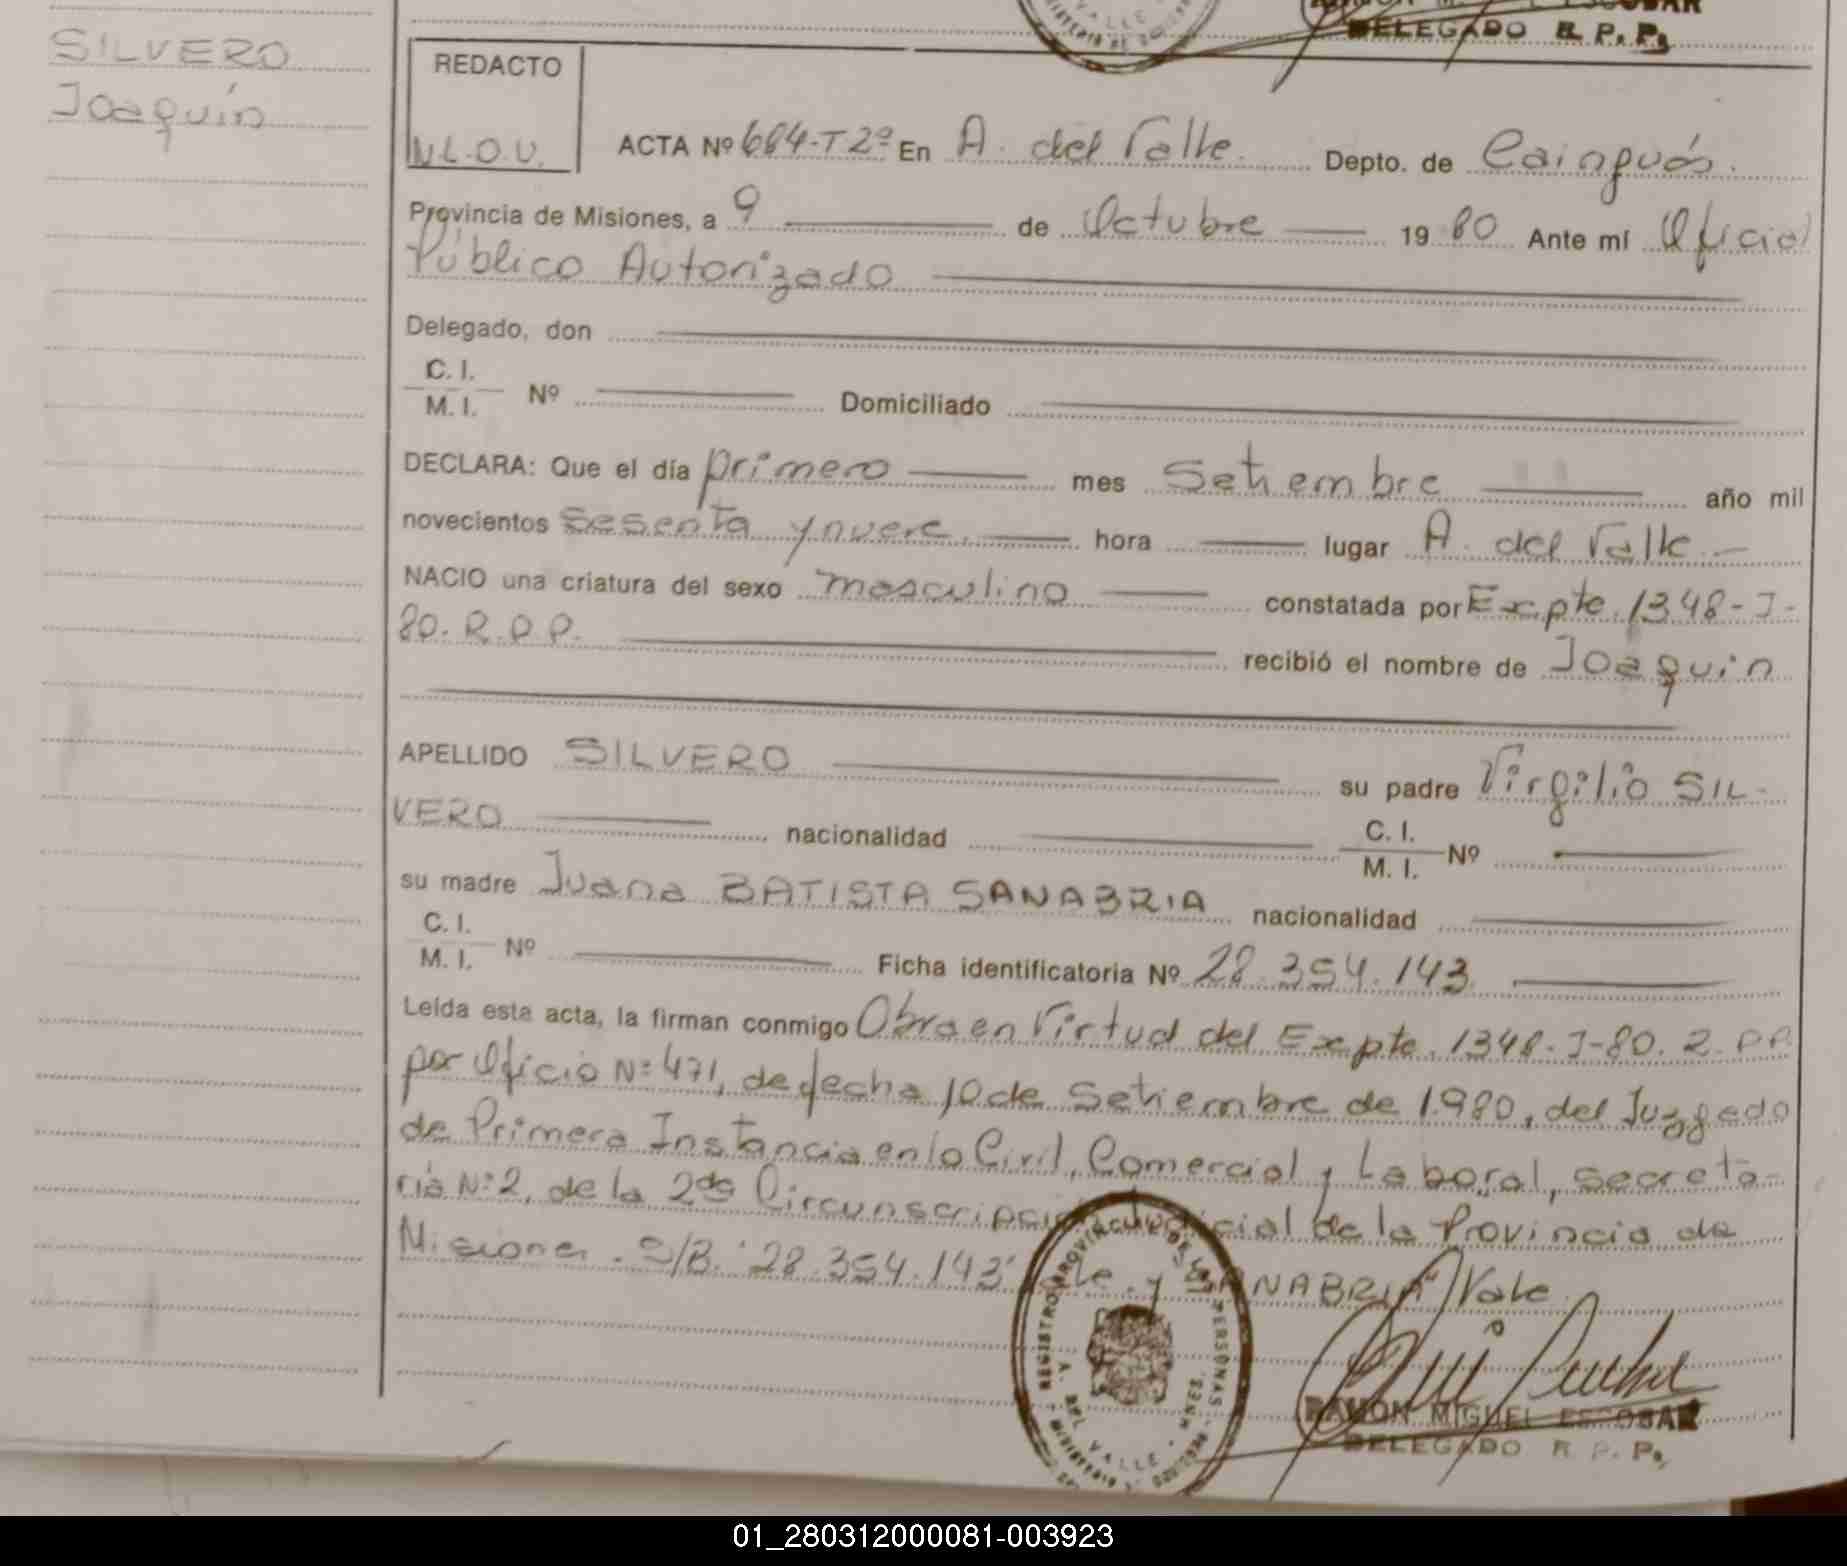 SILVERO
Joaquín
DELEGADO R. P. P.
REDACTO
N.L.O.V.
ACTA Nº 684-T2º En A. del Valle Depto. de Cainguás.
Provincia de Misiones, a 9 de Octubre 19 80 Ante mí Oficial
Público Autorizado
Delegado, don
C. I.
M. I. Nº Domiciliado
DECLARA: Que el día primero mes Setiembre año mil
novecientos sesenta y nueve. hora lugar A. del Valle.
NACIO una criatura del sexo masculino constatada por Expte. 1348-J-
80. R.P.P. recibió el nombre de Joaquín
APELLIDO SILVERO su padre Virgilio SIL-
VERO nacionalidad C. I.
M. I. Nº
su madre Juana BATISTA SANABRIA nacionalidad
C. I.
M. I. Nº Ficha identificatoria Nº 28.354.143
Leída esta acta, la firman conmigo Obra en Virtud del Expte. 1348-J-80. R.P.P.
por Oficio Nº 471, de fecha 10 de Setiembre de 1.980, del Juzgado
de Primera Instancia en lo Civil, Comercial y Laboral, secreta-
ría Nº 2, de la 2da Circunscripción Judicial de la Provincia de
Misiones. S/B. "28.354.143" y "SANABRIA" Vale.
REGISTRO PROVINCIAL DE LAS PERSONAS
A. DEL VALLE
RAMON MIGUEL ESCOBAR
DELEGADO R. P. P.
01_280312000081-003923